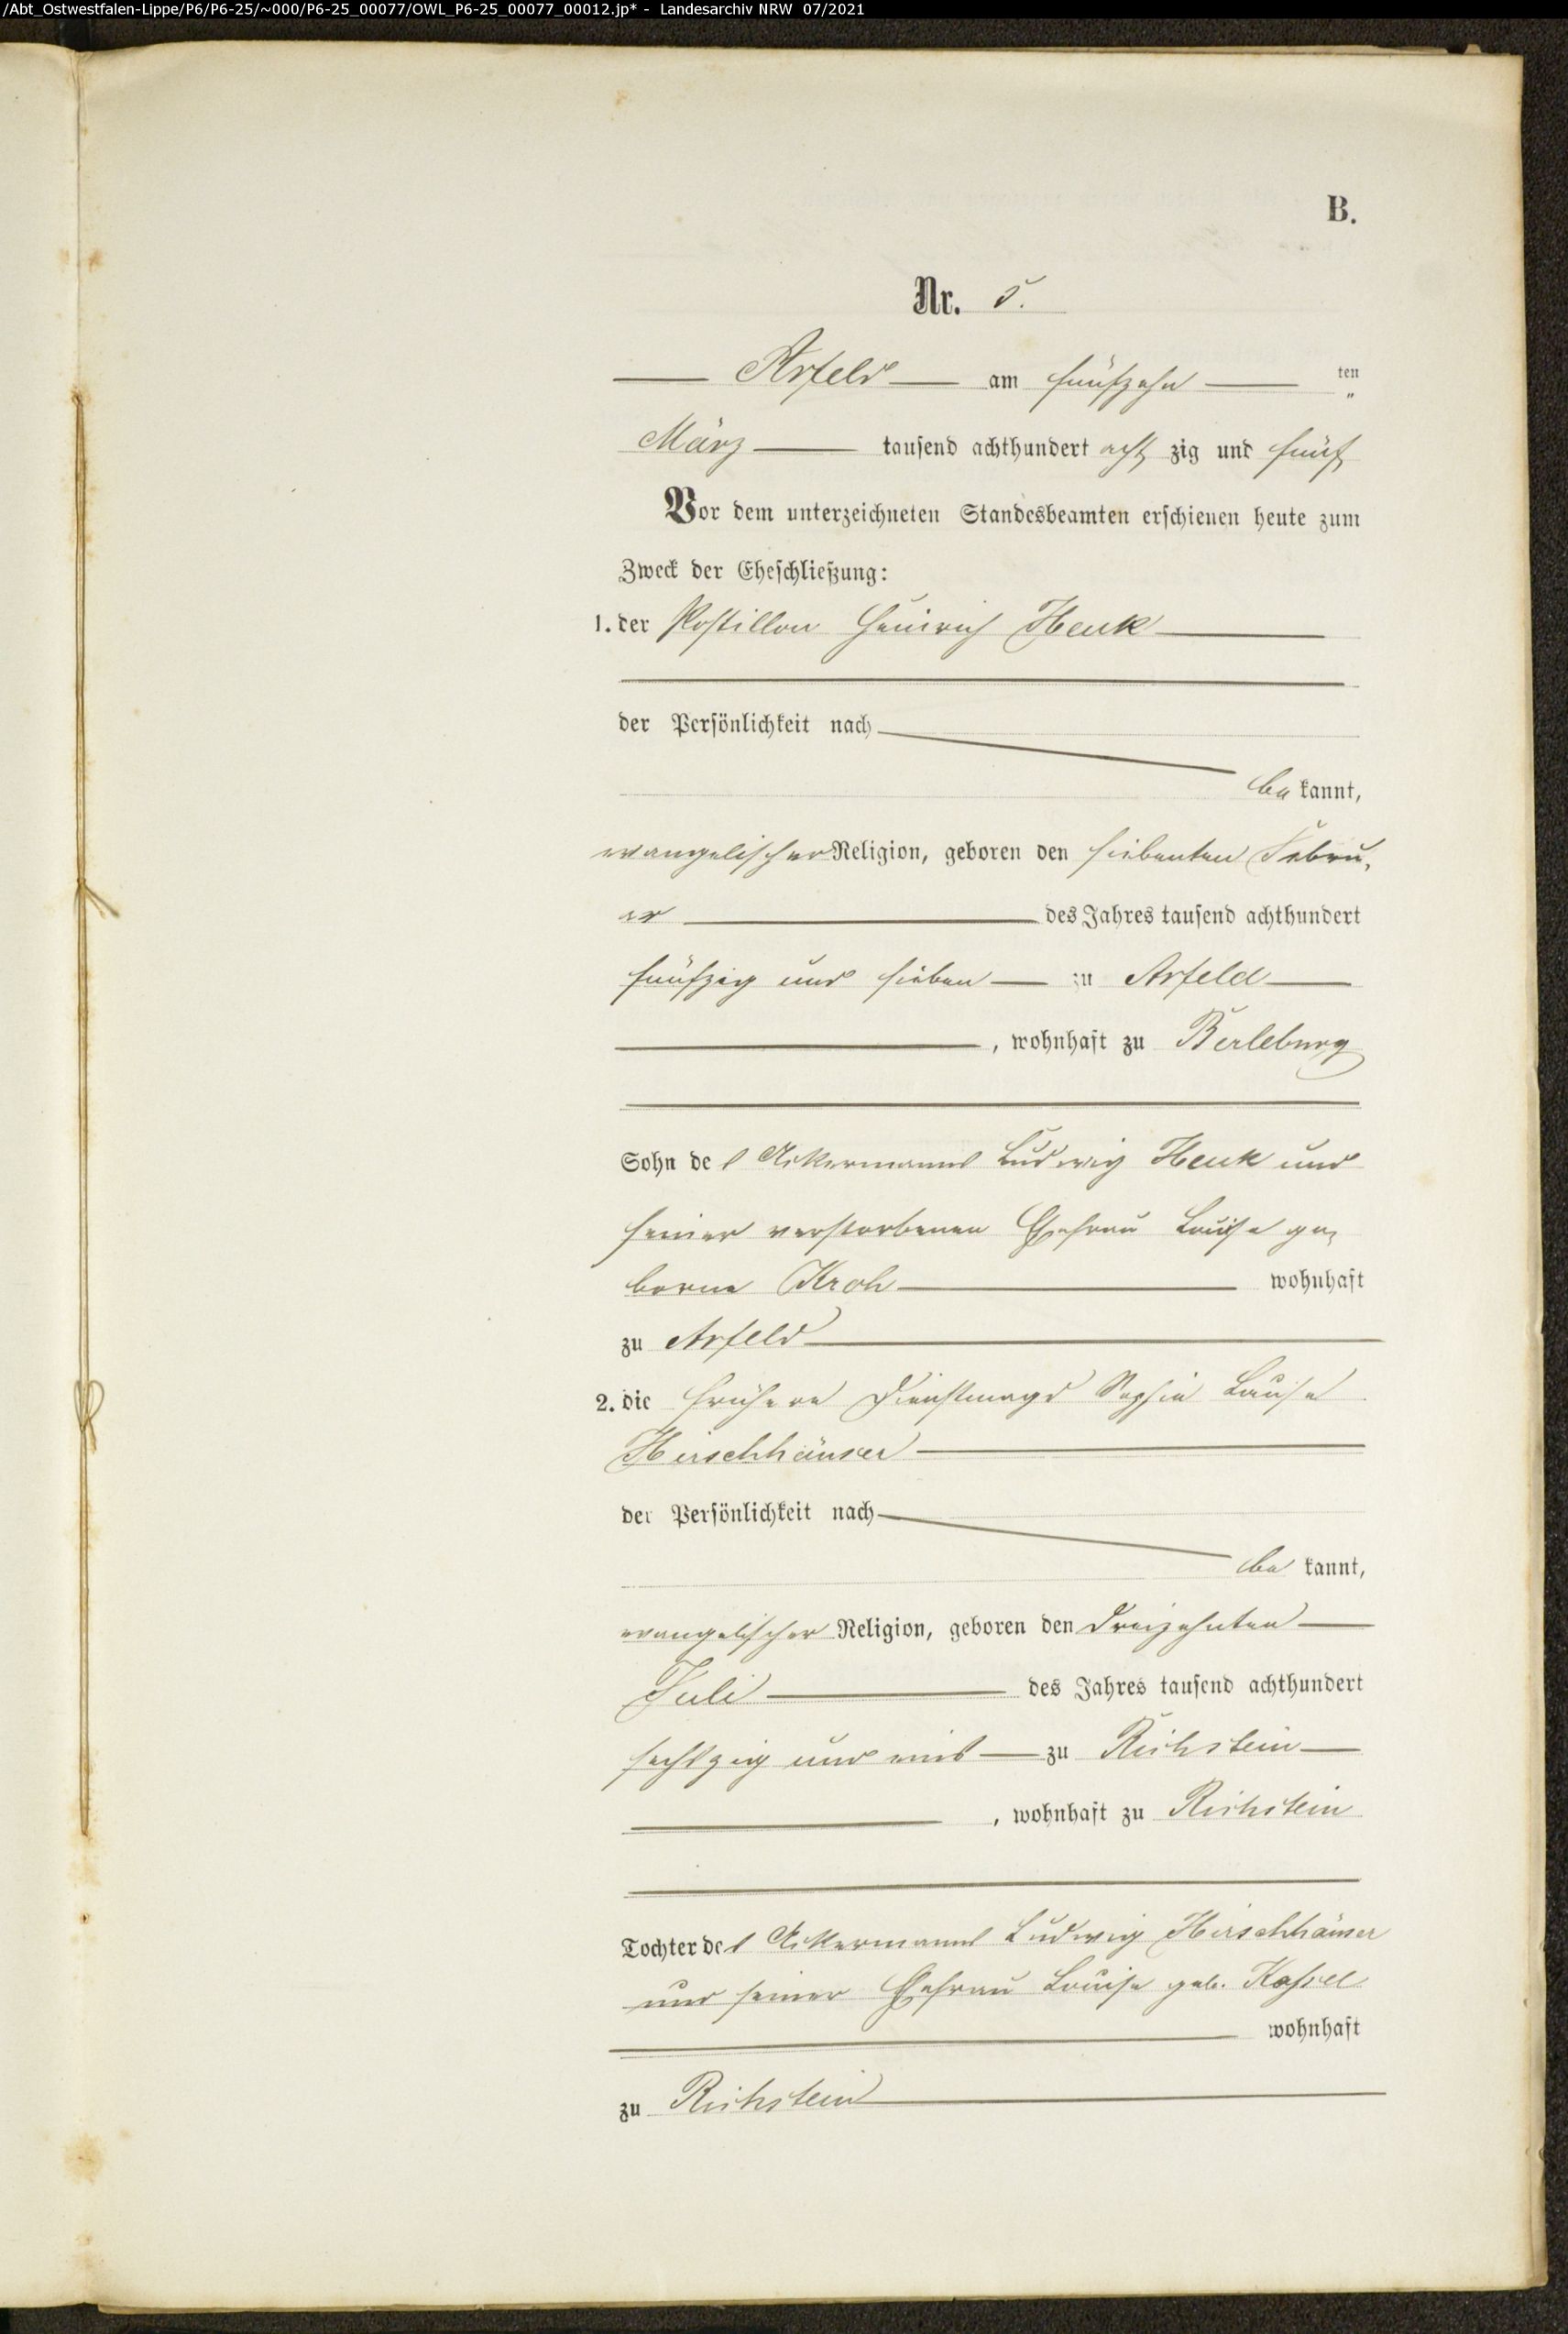 /Abt_Ostwestfalen-Lippe/P6/P6-25/~000/P6-25_00077/OWL_P6-25_00077_00012.jp* - Landesarchiv NRW 07/2021
B.
Nr. 5.
Arfeld am fünfzehn ten
März tausend achthundert acht zig und fünf
Vor dem unterzeichneten Standesbeamten erschienen heute zum
Zweck der Eheschließung:
1. der Postillon Heinrich Henk
der Persönlichkeit nach
be kannt,
evangelischer Religion, geboren den siebenten Febru-
ar des Jahres tausend achthundert
fünfzig und sieben zu Arfeld
, wohnhaft zu Berleburg
Sohn des Ackermanns Ludwig Henk und
seiner verstorbenen Ehefrau Louise ge-
borne Kroh wohnhaft
zu Arfeld
2. die frühere Dienstmagd Sophie Louise
Hirschhäuser
der Persönlichkeit nach
be kannt,
evangelischer Religion, geboren den dreizehnten
Juli des Jahres tausend achthundert
sechszig und eins zu Richstein
, wohnhaft zu Richstein
Tochter des Ackermanns Ludwig Hirschhäuser
und seiner Ehefrau Louise geb.
wohnhaft
zu Richstein